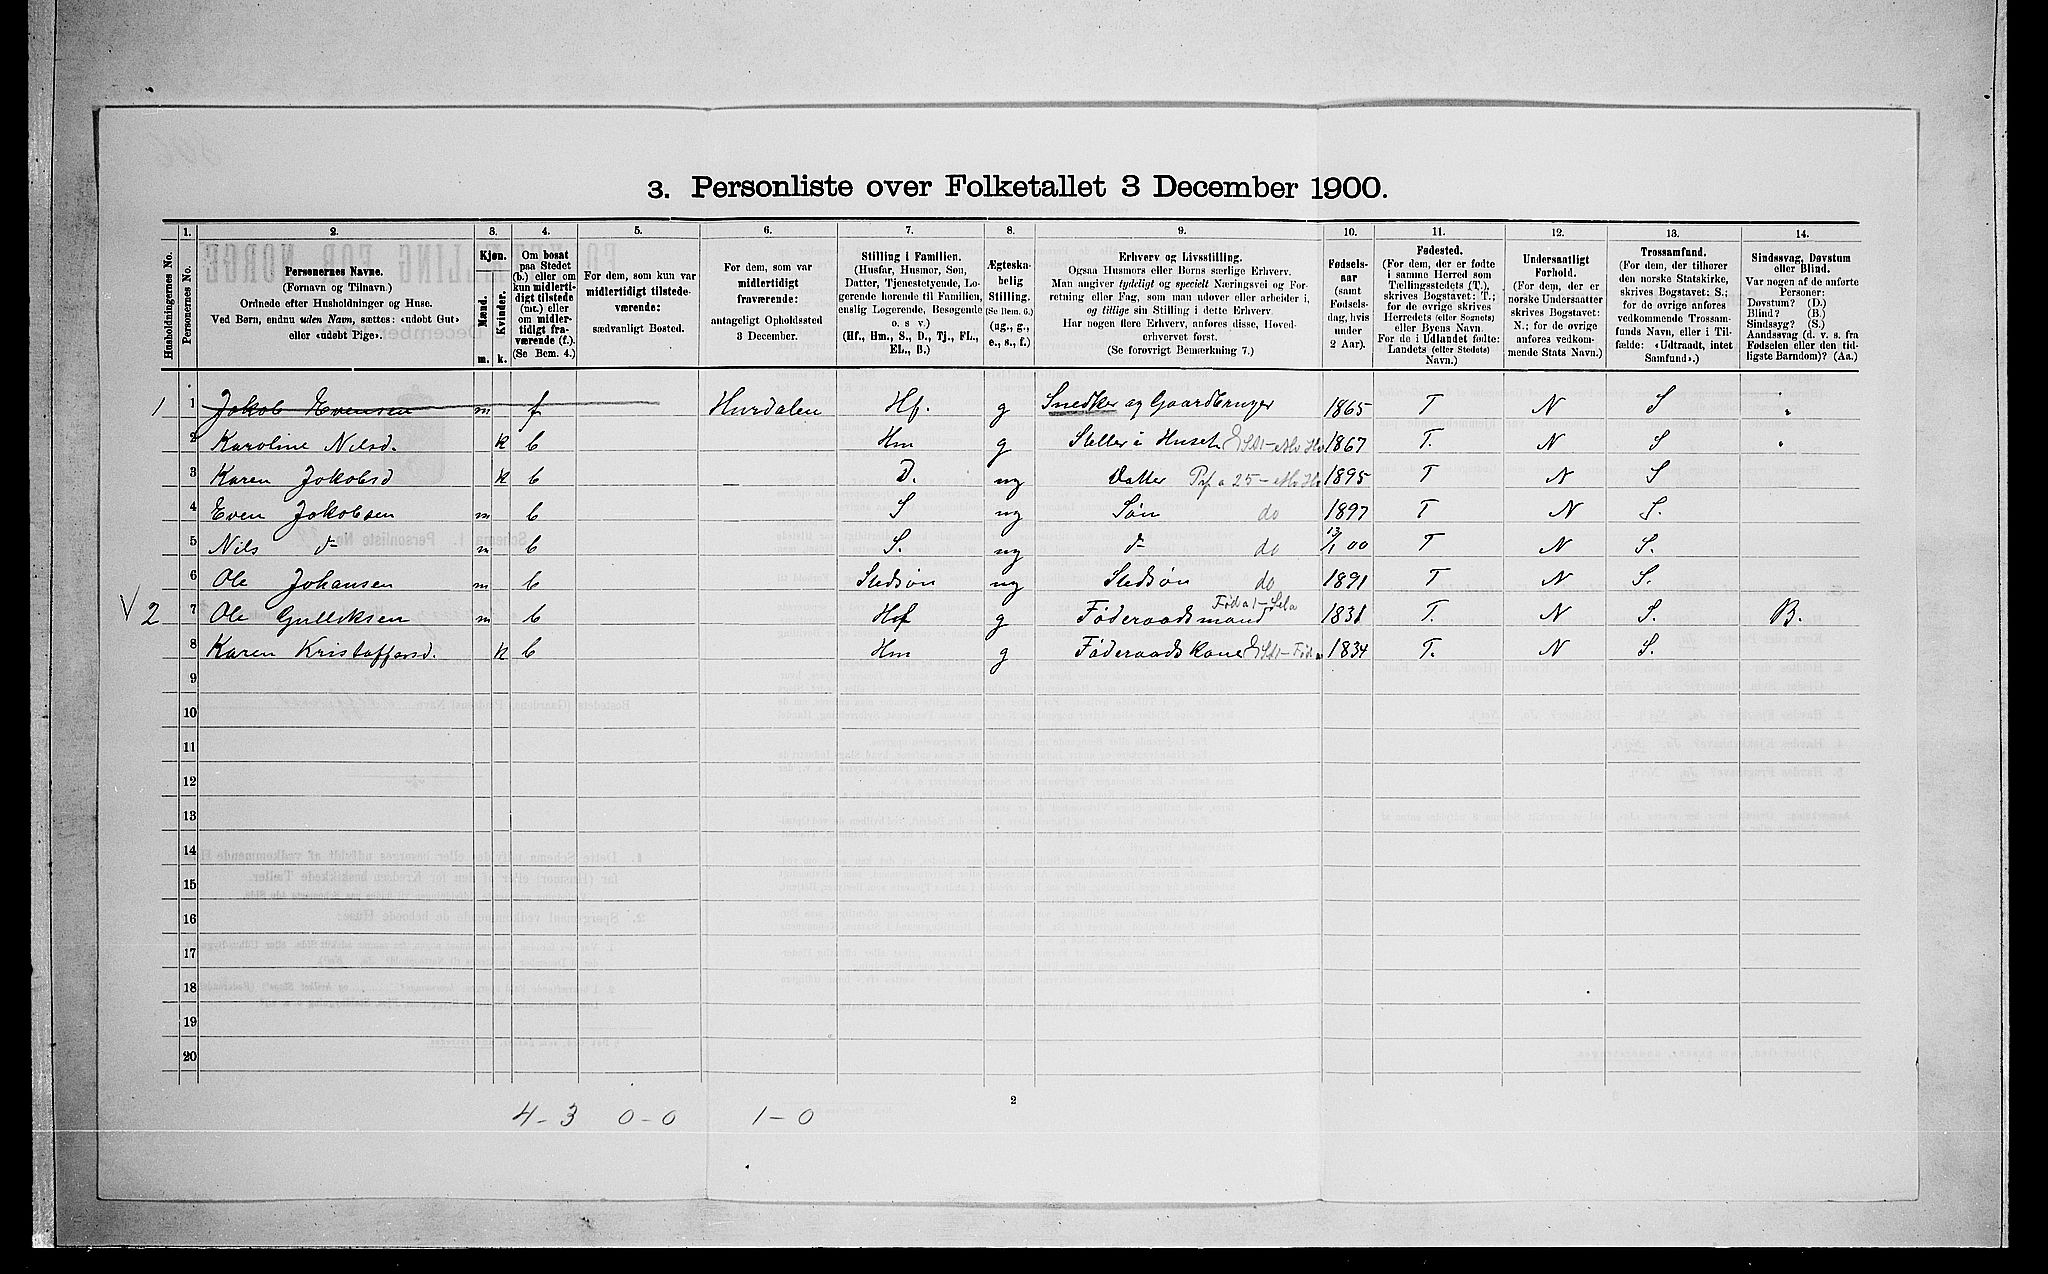 3. Personliste over Folketallet 3 December 1900.
1. 2. 3. 4. 5. 6. 7. 8. 9. 10. 11. 12. 13. 14.
Husholdningernes No.
Personernes No.
Personernes Navne.
(Fornavn og Tilnavn.)
Ordnede efter Husholdninger og Huse.
Ved Børn, endnu uden Navn, sættes: «udøbt Gut»
eller «udøbt Pige».
Kjøn.
Mænd. Kvinder.
m. k.
Om bosat
paa Stedet
(b.) eller om
kun midlerti-
digt tilstede
(mt.) eller
om midler-
tidigt fra-
værende (f.).
(Se Bem. 4.)
For dem, som kun var
midlertidigt tilstede-
værende:
sædvanligt Bosted.
For dem, som var
midlertidigt
fraværende:
antageligt Opholdssted
3 December.
Stilling i Familien.
(Husfar, Husmor, Søn,
Datter, Tjenestetyende, Lo-
gerende hørende til Familien,
enslig Logerende, Besøgende
o. s v.)
(Hf., Hm., S., D., Tj., FL.,
EL., B.)
Ægteska-
belig
Stilling.
(Se Bem. 6.)
(ug., g.,
e., s., f.)
Erhverv og Livsstilling.
Ogsaa Husmors eller Børns særlige Erhverv.
Man angiver tydeligt og specielt Næringsvei og For-
retning eller Fag, som man udøver eller arbeider i,
og tillige sin Stilling i dette Erhverv.
Har nogen flere Erhverv, anføres disse, Hoved-
erhvervet først.
(Se forøvrigt Bemærkning 7.)
Fødsels-
aar
(samt
Fødsels-
dag, hvis
under
2 Aar).
Fødested.
(For dem, der er fødte
i samme Herred som
Tællingsstedets (T.),
skrives Bogstavet: T.;
for de øvrige skrives
Herredets (eller Sognets)
eller Byens Navn.
For de i Udlandet fødte:
Landets (eller Stedets)
Navn.)
Undersaatligt
Forhold.
(For dem, der er
norske Undersaatter
skrives Bogstavet:
N.; for de øvrige
anføres vedkom-
mende Stats Navn.)
Trossamfund.
(For dem, der tilhører
den norske Statskirke,
skrives Bogstavet: S.;
for de øvrige anføres
vedkommende Trossam-
funds Navn, eller i Til-
fælde: «Udtraadt, intet
Samfund».)
Sindssvag, Døvstum
eller Blind.
Var nogen af de anførte
Personer:
Døvstum? (D.)
Blind? (B.)
Sindssyg? (S.)
Aandssvag (d. v. s. fra
Fødselen eller den tid-
ligste Barndom)? (Aa.)
1 1 Jakob Evensen m f Hurdalen Hf. g Snedker og Gaardbruger 1865 T N S "
2 Karoline Nilsd. k b Hm g Steller i Huset 1867 T. N S "
3 Karen Jokobsd k b — D. ug Datter 1895 T N S
4 Even Jokobsen m b S ug Søn do 1897 T N S.
5 Nils d- m b S. ug d- do 13/1 00 T N S.
6 Ole Johansen m b Stedsøn ug Stedsøn do 1891 T N S.
V 2 7 Ole Gulliksen m b Hf g Føderaadsmand 1838 T. N S. B.
8 Karen Kristoffersd. k b Hm g Føderaadskone 1834 T. N S.
9
10
11
12
13
14
15
16
17
18
19
20
4-3 0-0 1-0
2